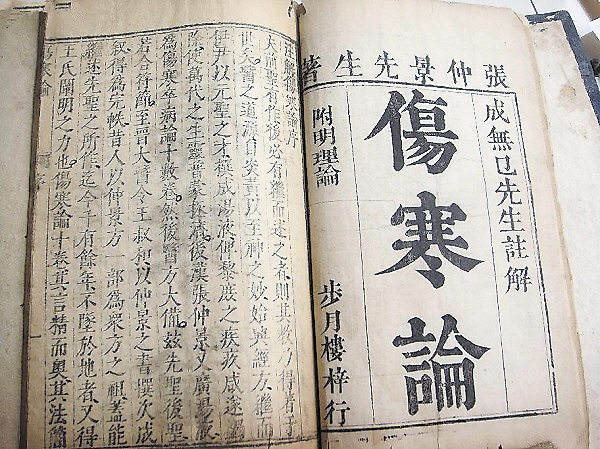 張仲景先生著
成無已先生註解
傷寒論
附明理論
步月樓梓行
註解傷寒論序
夫前聖有作後必有繼而述之者則其教乃得著于
世矣醫之道源自炎黃以至神之妙始興經方繼而
伊尹以元聖之才撰成湯液俾黎庶之疾疚咸遂蠲
除使萬代之生靈普蒙拯濟後漢張仲景又廣湯液
為傷寒卒病論十數卷然後醫方大備茲先聖後聖
若合符節至晉太醫令王叔和以仲景之書撰次成
敘得為完帙昔人以仲景方一部為眾方之祖蓋能
繼述先聖之所作迄今千有餘年不墜於地者又得
王氏闡明之力也傷寒論十卷其言精而奧其法簡